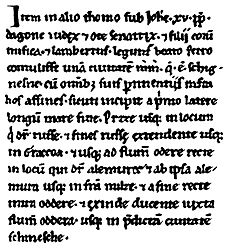 Item in alio thomo sub Iohe · xv · pp ·
dagone iudex & ote senatrix · & filii eorũ
misica · & lambertus · legunt̃ beato petro
contulisse unã ciuitatẽ · q̃ · ẽ · schig
nesne · cũ omib; suis ptinentiis infra
hos affines · sicuti incipit a primo latere
longũ mare fine · Pruzze usq; in locum
q̃ dr̃ · russe · & fines russe extendente usq;
in craccoa · & usq; ad flum̃ · odere recte
in locũ qui dr̃ alemure · & ab ipsa ale
mura usq; in t̃rã milze · & a fine recte
intra oddere · & exinde ducente iuxta
flum̃ oddera · usq; in p̃dictã ciuitatẽ
schinesche ·